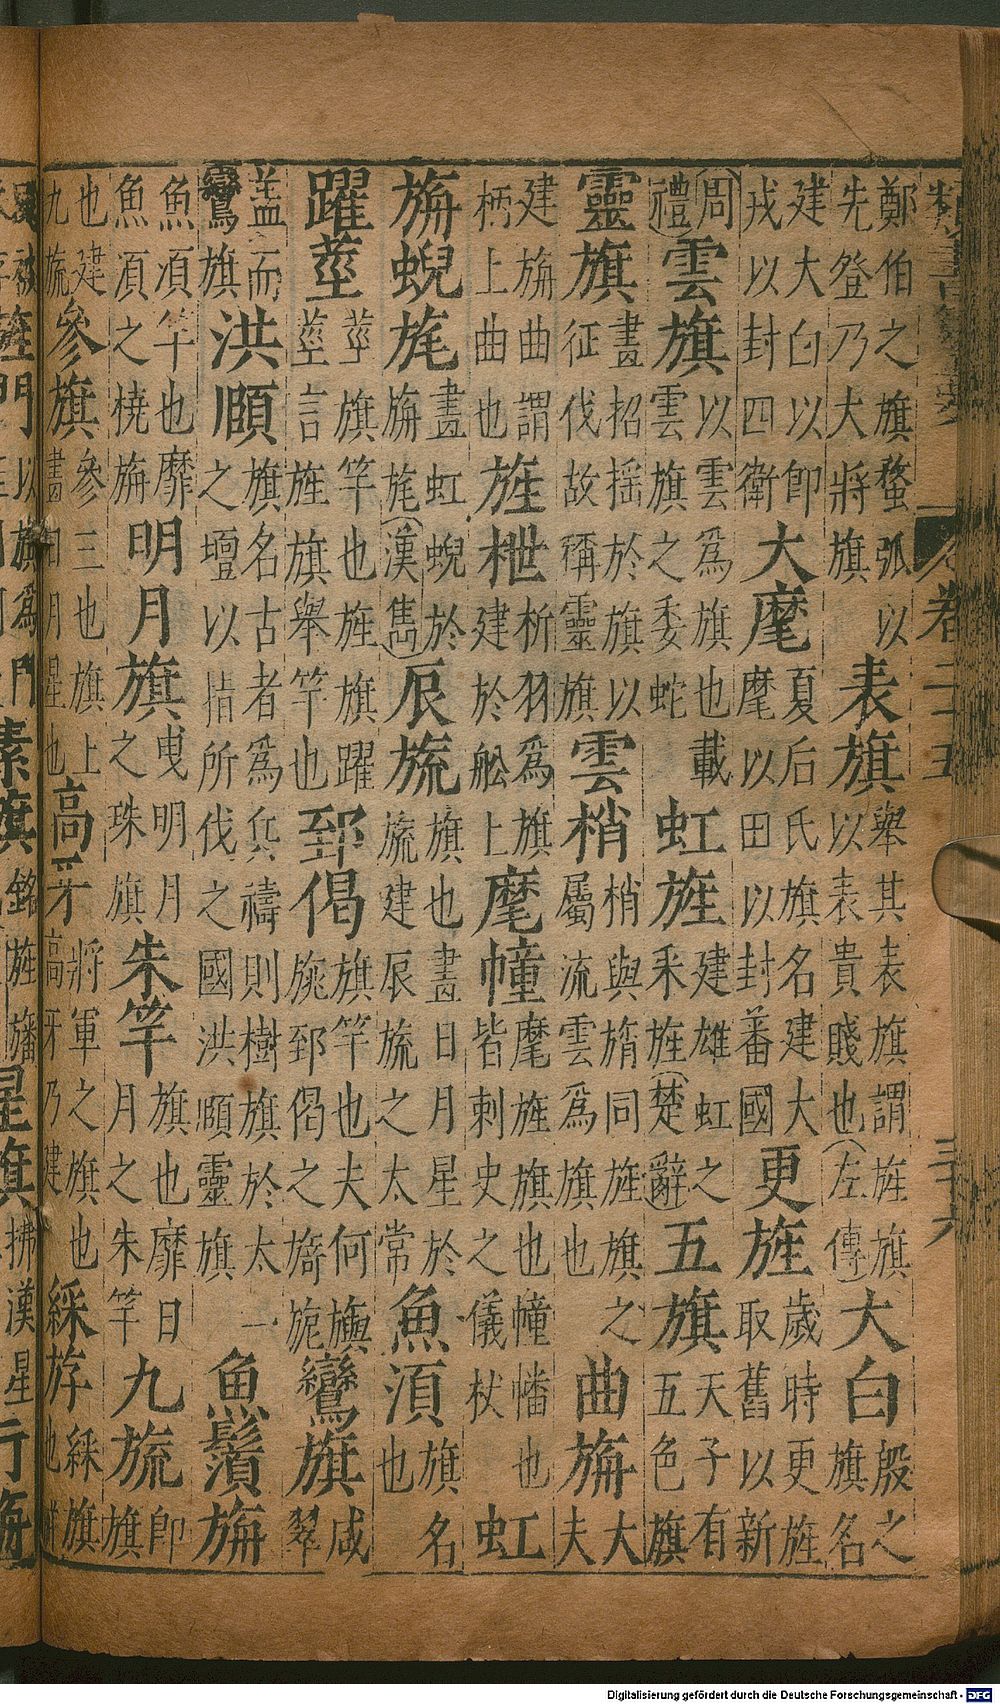 卷二十五
鄭伯之旗蝥弧以先登乃大將旗 表旗 舉其表旗謂旌旗以表貴賤也左傳 大白 殷之旗名
建大白以即戎以封四衛 大麾 夏后氏旗名建大麾以田以封蕃國 更旌 歲時更旌取舊以新
周禮 雲旗 以雲爲旗也載雲旗之委蛇 虹旌 建雄虹之釆旌楚辭 五旗 天子有五色旗
靈旗 畫招揺於旗以征伐故稱靈旗 雲梢 梢與旓同旌旗之屬流雲爲旗也 曲旃 大夫
建旃曲謂柄上曲也 旌枻 析羽爲旗建於舩上 麾幢 麾旌旗也幢幡也皆刺史之儀杖 虹
旃蜺旄 畫虹蜺於旃旄漢雋 辰旒 旗也畫日月星於旒建辰旒之太常 魚須 旗名也
躍莖 莖旗竿也旌旗躍莖言旌旗舉竿也 郅偈 旗竿也夫何旟旐郅偈之旖旎 鸞旗 咸翠
盖而鸞旗 洪頤 旗名古者爲兵禱則樹旗於太一之壇以指所伐之國洪頤靈旗 魚鬚旃
魚須竿也靡魚須之橈旃 明月旗 曵明月之珠旗 朱竿 旗也靡日月之朱竿 九旒 即旗
也建九旒 參旗 參三也旗上畫日月星也 高牙 將軍之旗也高牙乃建 綵斿 綵旗也
Digitalisierung gefördert durch die Deutsche Forschungsgemeinschaft - DFG